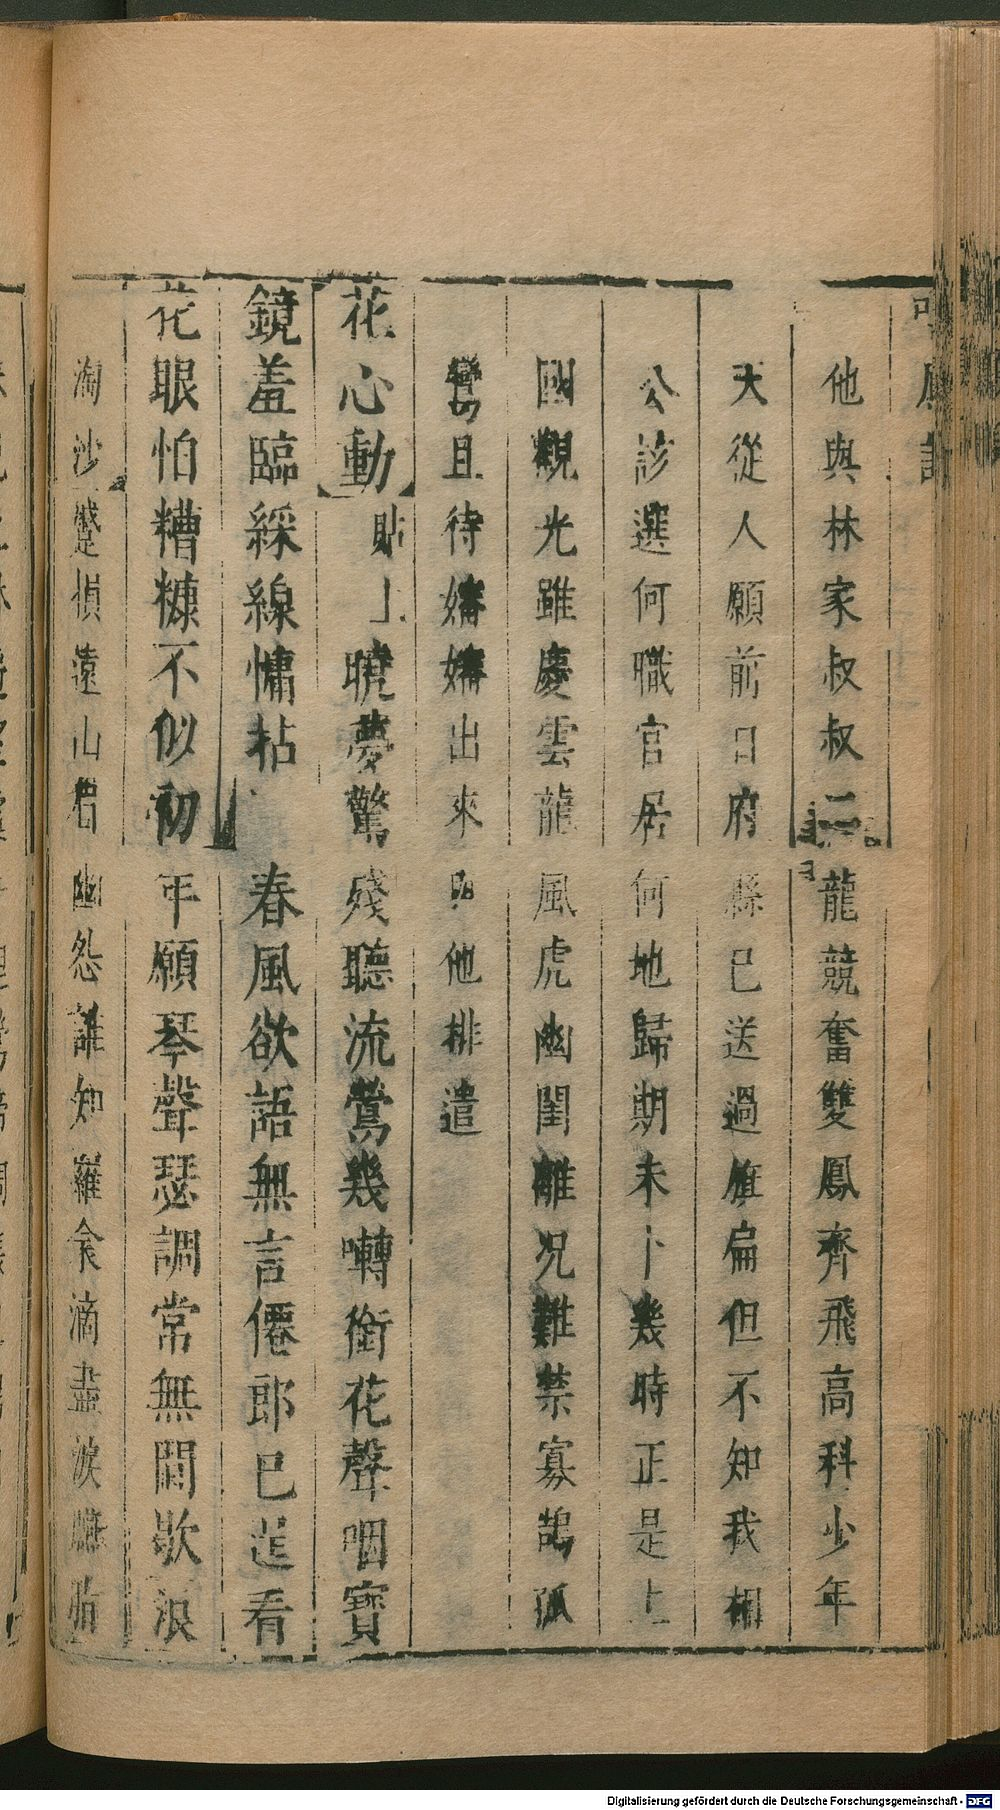 他與林家叔叔二龍競奮雙鳳齊飛高科少年
大從人願前日府縣已送過旗扁但不知我相
公診選何職官居何地歸期未卜幾時正是上
國觀光雖慶雲龍風虎幽閨離況難禁寡鵠孤
鸞且待嬌嬌出來與他排遣
花心動】貼上曉夢驚殘聽流鶯幾囀銜花聲咽寶
鏡羞臨綵線慵拈春風欲語無言僊郎已逞看
花眼怕糟糠不似初年願琴聲瑟調常無間歇浪
淘沙】蹙損遠山眉幽怨誰知羅衾滴盡淚臙脂
Digitalisierung gefördert durch die Deutsche Forschungsgemeinschaft - DFG